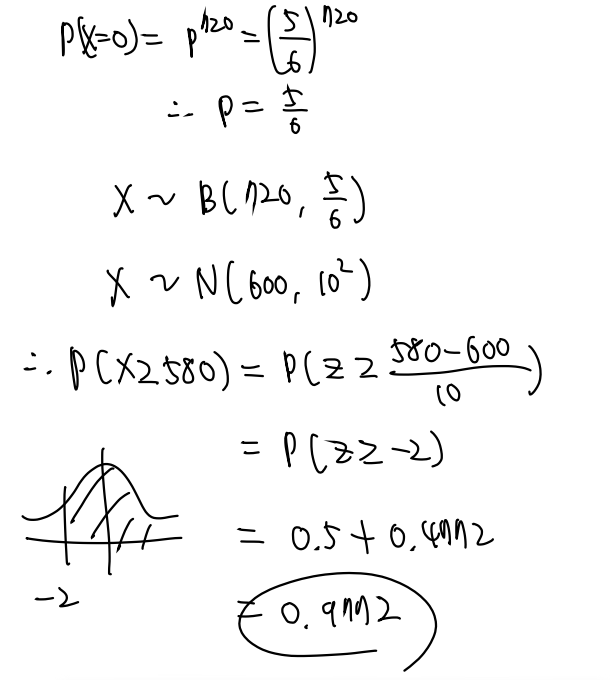 P(X=0) = p^720 = (5/6)^720
∴ p = 5/6
X ~ B(720, 5/6)
X ~ N(600, 10²)
∴ P(X≥580) = P(Z≥ (580-600)/10)
= P(Z≥-2)
= 0.5 + 0.4772
-2
= 0.9772